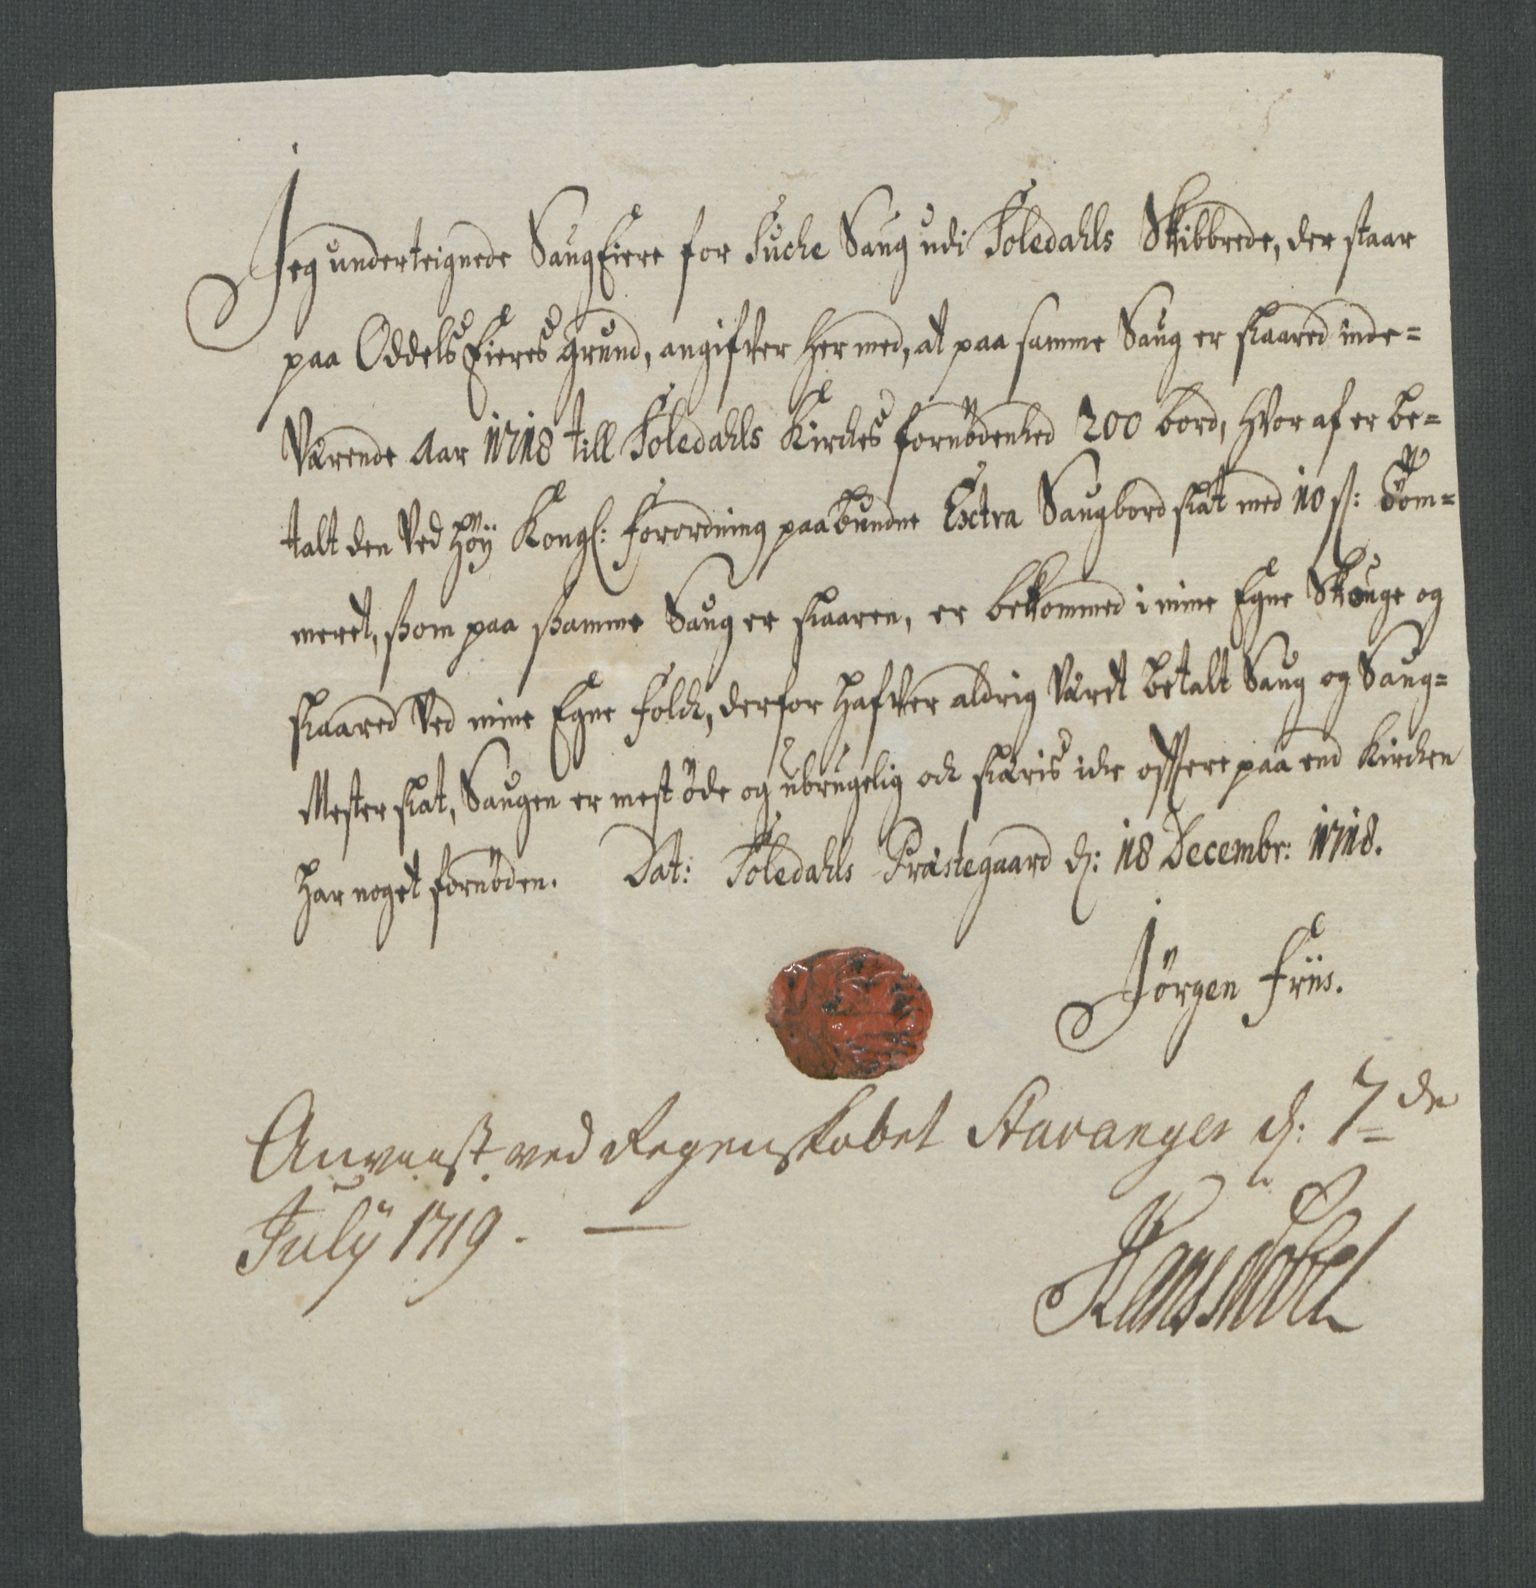 Jeg underteignede SaugEiere for Suche Saug udi Soledahls Skibbrede, der staar
paa Oddels Eieres grund, angifver her med, at paa samme Saug er skaared inde-
Værende Aar 1718 till Soledahls Kirckes fornödenhed 200 bord, hvor af er be-
talt den Ved höÿ Kongl: forordning paabundne Extra Saugbord skat med 10 s: Töm-
meret, som paa samme Saug er skaaren, er bekommed i mine Egne Skouge og
skaared Ved mine Egne folck, derfor hafver aldrig Været betalt Saug og Saug-
Mester skat, Saugen er mest öde og ubrugelig och skæris icke oftere paa end Kircken
har noget fornöden. Dat: Soledahls Præstegaard d: 18 Decembr: 1718.
Jörgen Friis.
Anvüst ved Regenskabet Stavanger d: 7de
Julÿ 1719. —
Hans Nobel